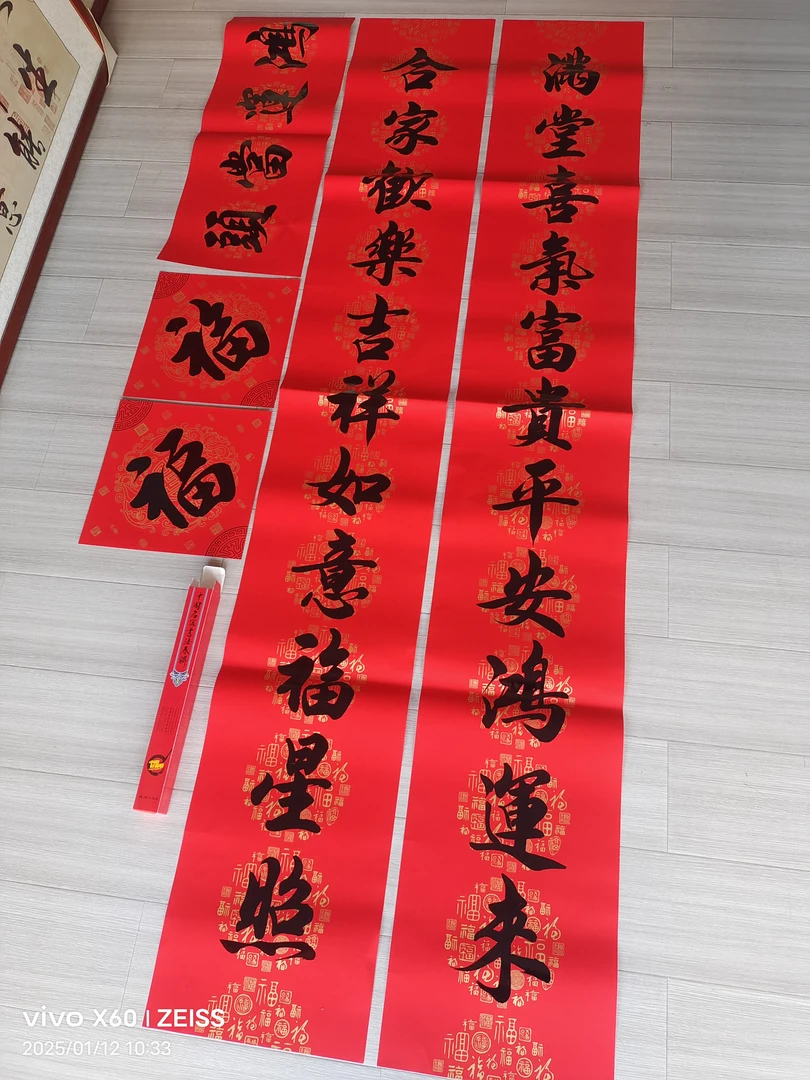 满堂喜氣富貴平安鴻運来
合家歡樂吉祥如意福星照
鴻運當頭
福
福
vivo X60 | ZEISS
2025/01/12 10:33